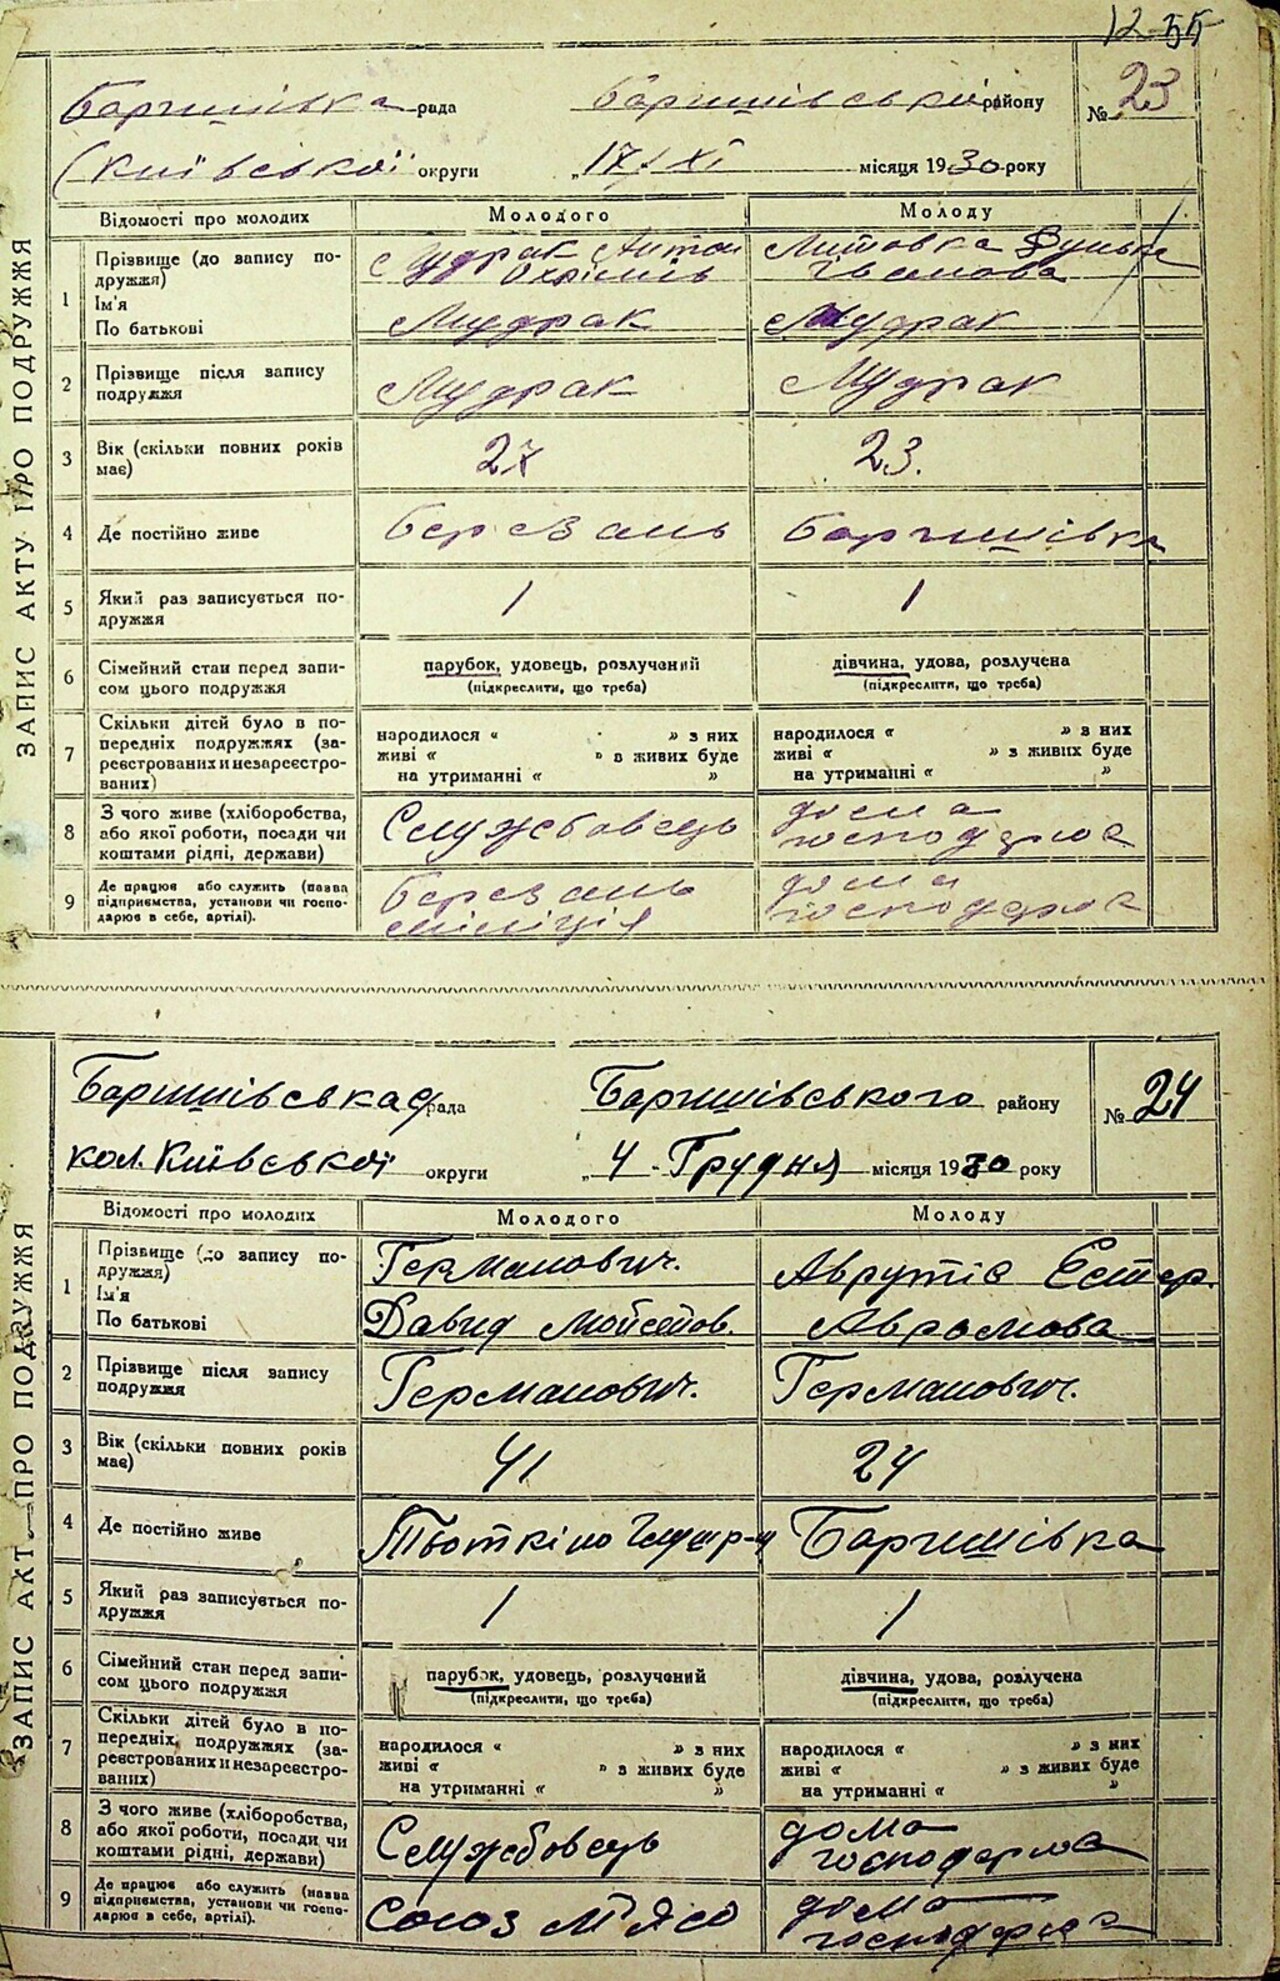 12 55
ЗАПИС АКТУ ПРО ПОДРУЖЖЯ
Баришівка рада Баришівський району № 23
Київської округи „17/XI місяця 1930 року
Відомості про молодих Молодого Молоду
1 Прізвище (до запису по-
дружжя)
Ім'я
По батькові
Мудрак Антон
Охрімів
Мудрак
Литовка
Іванова
Мудрак
2 Прізвище після запису
подружжя
Мудрак Мудрак
3 Вік (скільки повних років
має)
27 23.
4 Де постійно живе Березань Баришівка
5 Який раз записується по-
дружжя
1 1
6 Сімейний стан перед запи-
сом цього подружжя
парубок, удовець, розлучений
(підкреслити, що треба)
дівчина, удова, розлучена
(підкреслити, що треба)
7 Скільки дітей було в по-
передніх подружжях (за-
реєстрованих и незареєстро-
ваних)
народилося « » з них
живі « » в живих буде
на утриманні « »
народилося « » з них
живі « » з живих буде
на утриманні « »
8 З чого живе (хліборобства,
або якої роботи, посади чи
коштами рідні, держави)
Службовець
дома
господарює
9 Де працює або служить (назва
підприємства, установи чи госпо-
дарює в себе, артілі).
Березань
міліція
дома
господарює
ЗАПИС АКТ ПРО ПОДРУЖЖЯ
Баришівська рада Баришівського району № 24
кол. Київської округи „4 - Грудня місяця 1930 року
Відомості про молодих Молодого Молоду
1 Прізвище (до запису по-
дружжя)
Ім'я
По батькові
Германович.
Давид Мойсейов.
Аврутіс Естер.
Аврамова
2 Прізвище після запису
подружжя
Германович. Германович.
3 Вік (скільки повних років
має)
41 24
4 Де постійно живе Тьоткіно Баришівка
5 Який раз записується по-
дружжя
1 1
6 Сімейний стан перед запи-
сом цього подружжя
парубок, удовець, розлучений
(підкреслити, що треба)
дівчина, удова, розлучена
(підкреслити, що треба)
7 Скільки дітей було в по-
передніх подружжях (за-
реєстрованих и незареєстро-
ваних)
народилося « » з них
живі « » з живих буде
на утриманні « »
народилося « » з них
живі « » з живих буде
на утриманні « »
8 З чого живе (хліборобства,
або якої роботи, посади чи
коштами рідні, держави)
Службовець
дома
господарює
9 Де працює або служить (назва
підприємства, установи чи госпо-
дарює в себе, артілі).
Союз М'ясо
дома
господарює